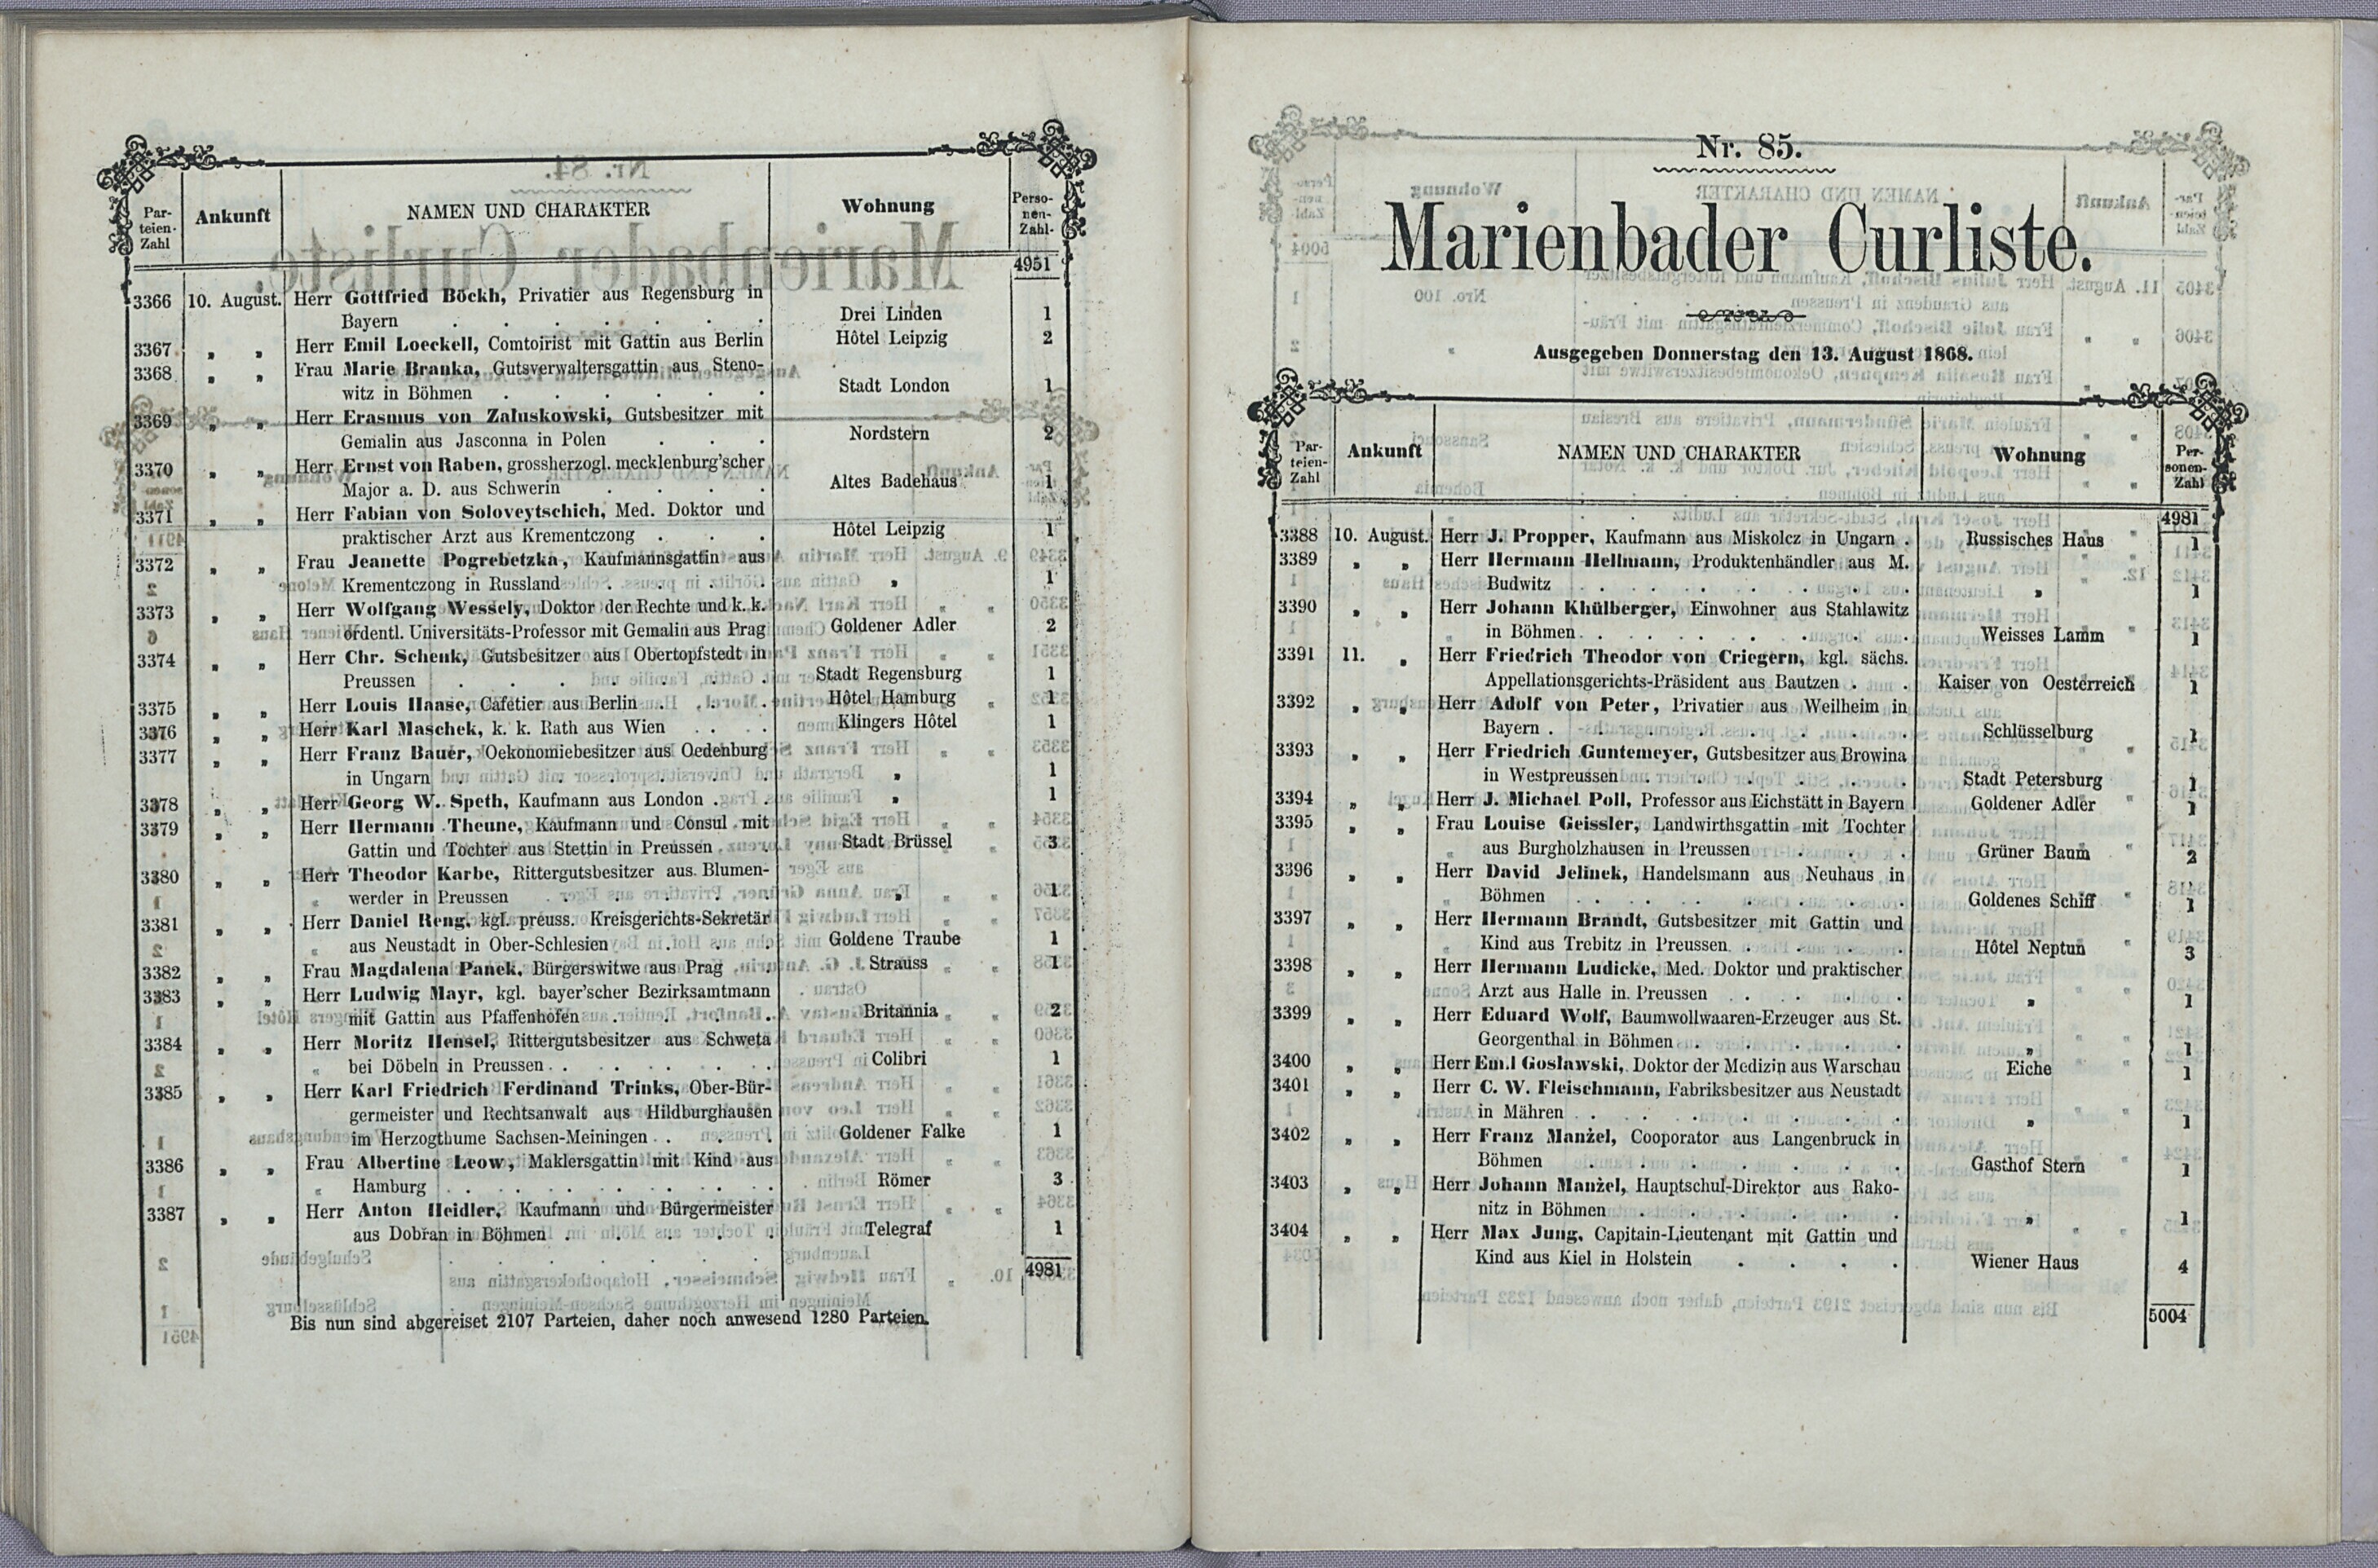 Par-
teien-
Zahl
Ankunft
NAMEN UND CHARAKTER
Wohnung
Perso-
nen-
Zahl.
4951
3366 10. August. Herr Gottfried Böckh, Privatier aus Regensburg in
Bayern . . . . . . . Drei Linden 1
3367 „ „ Herr Emil Loeckell, Comtoirist mit Gattin aus Berlin Hôtel Leipzig 2
3368 „ „ Frau Marie Branka, Gutsverwaltersgattin aus Steno-
witz in Böhmen . . . . . . Stadt London 1
3369 „ „ Herr Erasmus von Zaluskowski, Gutsbesitzer mit
Gemalin aus Jasconna in Polen . . . Nordstern 2
3370 „ „ Herr Ernst von Raben, grossherzogl. mecklenburg'scher
Major a. D. aus Schwerin . . . . Altes Badehaus 1
3371 „ „ Herr Fabian von Soloveytschich, Med. Doktor und
praktischer Arzt aus Krementczong . . . Hôtel Leipzig 1
3372 „ „ Frau Jeanette Pogrebetzka, Kaufmannsgattin aus
Krementczong in Russland . . . . „ 1
3373 „ „ Herr Wolfgang Wessely, Doktor der Rechte und k. k.
ordentl. Universitäts-Professor mit Gemalin aus Prag Goldener Adler 2
3374 „ „ Herr Chr. Schenk, Gutsbesitzer aus Obertopfstedt in
Preussen . . . . . . . Stadt Regensburg 1
3375 „ „ Herr Louis Haase, Cafétier aus Berlin . . . Hôtel Hamburg 1
3376 „ „ Herr Karl Maschek, k. k. Rath aus Wien . . . Klingers Hôtel 1
3377 „ „ Herr Franz Bauer, Oekonomiebesitzer aus Oedenburg
in Ungarn . . . . . . . „ 1
3378 „ „ Herr Georg W. Speth, Kaufmann aus London . . „ 1
3379 „ „ Herr Hermann Theune, Kaufmann und Consul mit
Gattin und Tochter aus Stettin in Preussen . . Stadt Brüssel 3
3380 „ „ Herr Theodor Karbe, Rittergutsbesitzer aus Blumen-
werder in Preussen . . . . . „ 1
3381 „ „ Herr Daniel Reng, kgl. preuss. Kreisgerichts-Sekretär
aus Neustadt in Ober-Schlesien . . . Goldene Traube 1
3382 „ „ Frau Magdalena Panek, Bürgerswitwe aus Prag . Strauss 1
3383 „ „ Herr Ludwig Mayr, kgl. bayer'scher Bezirksamtmann
mit Gattin aus Pfaffenhofen . . . . Britannia 2
3384 „ „ Herr Moritz Hensel, Rittergutsbesitzer aus Schweta
bei Döbeln in Preussen . . . . . Colibri 1
3385 „ „ Herr Karl Friedrich Ferdinand Trinks, Ober-Bür-
germeister und Rechtsanwalt aus Hildburghausen
im Herzogthume Sachsen-Meiningen . . . Goldener Falke 1
3386 „ „ Frau Albertine Leow, Maklersgattin mit Kind aus
Hamburg . . . . . . . Römer 3
3387 „ „ Herr Anton Heidler, Kaufmann und Bürgermeister
aus Dobřan in Böhmen . . . . . Telegraf 1
4981
Bis nun sind abgereiset 2107 Parteien, daher noch anwesend 1280 Parteien.
Nr. 85.
Marienbader Curliste.
Ausgegeben Donnerstag den 13. August 1868.
Par-
teien-
Zahl
Ankunft
NAMEN UND CHARAKTER
Wohnung
Per-
sonen-
Zahl
4981
3388 10. August. Herr J. Propper, Kaufmann aus Miskolcz in Ungarn . Russisches Haus 1
3389 „ „ Herr Hermann Hellmann, Produktenhändler aus M.
Budwitz . . . . . . . „ 1
3390 „ „ Herr Johann Khülberger, Einwohner aus Stahlawitz
in Böhmen . . . . . . . Weisses Lamm 1
3391 11. „ Herr Friedrich Theodor von Criegern, kgl. sächs.
Appellationsgerichts-Präsident aus Bautzen . . Kaiser von Oesterreich 1
3392 „ „ Herr Adolf von Peter, Privatier aus Weilheim in
Bayern . . . . . . . . Schlüsselburg 1
3393 „ „ Herr Friedrich Guntemeyer, Gutsbesitzer aus Browina
in Westpreussen . . . . . . Stadt Petersburg 1
3394 „ „ Herr J. Michael Poll, Professor aus Eichstätt in Bayern Goldener Adler 1
3395 „ „ Frau Louise Geissler, Landwirthsgattin mit Tochter
aus Burgholzhausen in Preussen . . . Grüner Baum 2
3396 „ „ Herr David Jelinek, Handelsmann aus Neuhaus in
Böhmen . . . . . . . Goldenes Schiff 1
3397 „ „ Herr Hermann Brandt, Gutsbesitzer mit Gattin und
Kind aus Trebitz in Preussen . . . . Hôtel Neptun 3
3398 „ „ Herr Hermann Ludicke, Med. Doktor und praktischer
Arzt aus Halle in Preussen . . . . „ 1
3399 „ „ Herr Eduard Wolf, Baumwollwaaren-Erzeuger aus St.
Georgenthal in Böhmen . . . . . „ 1
3400 „ „ Herr Em.l Goslawski, Doktor der Medizin aus Warschau Eiche 1
3401 „ „ Herr C. W. Fleischmann, Fabriksbesitzer aus Neustadt
in Mähren . . . . . . . „ 1
3402 „ „ Herr Franz Manžel, Cooporator aus Langenbruck in
Böhmen . . . . . . . Gasthof Stern 1
3403 „ „ Herr Johann Manžel, Hauptschul-Direktor aus Rako-
nitz in Böhmen . . . . . . „ 1
3404 „ „ Herr Max Jung, Capitain-Lieutenant mit Gattin und
Kind aus Kiel in Holstein . . . . Wiener Haus 4
5004